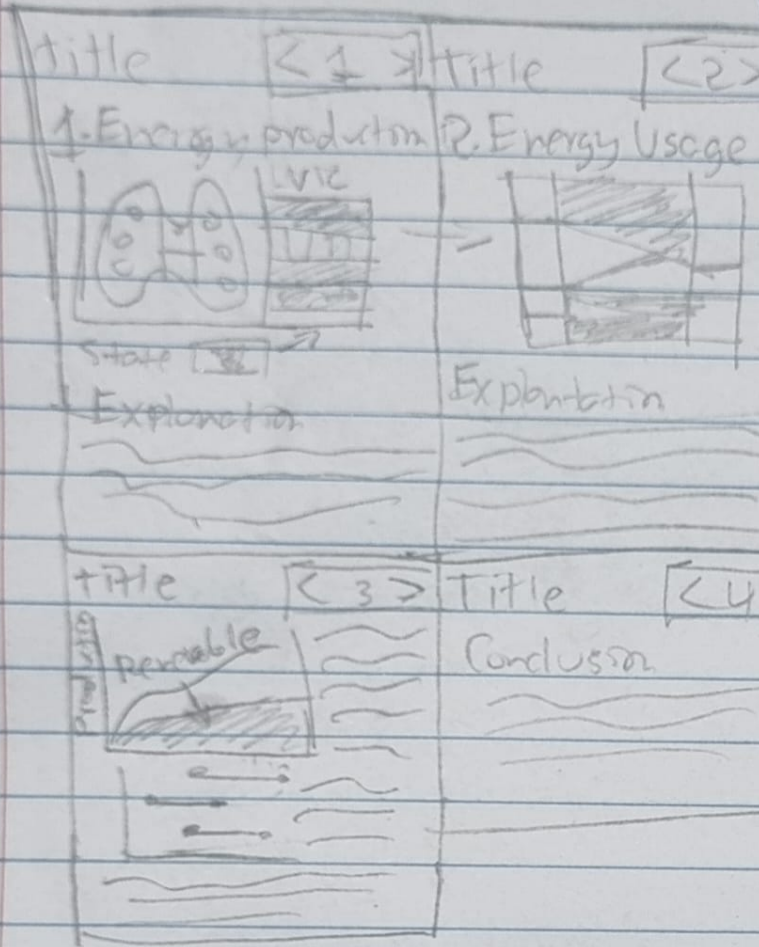 title <1>
1. Energy production
VIC
State
Explanation
Title <2>
2. Energy Usage
Explantatin
title <3>
Renewable
Title <4
Conclusion